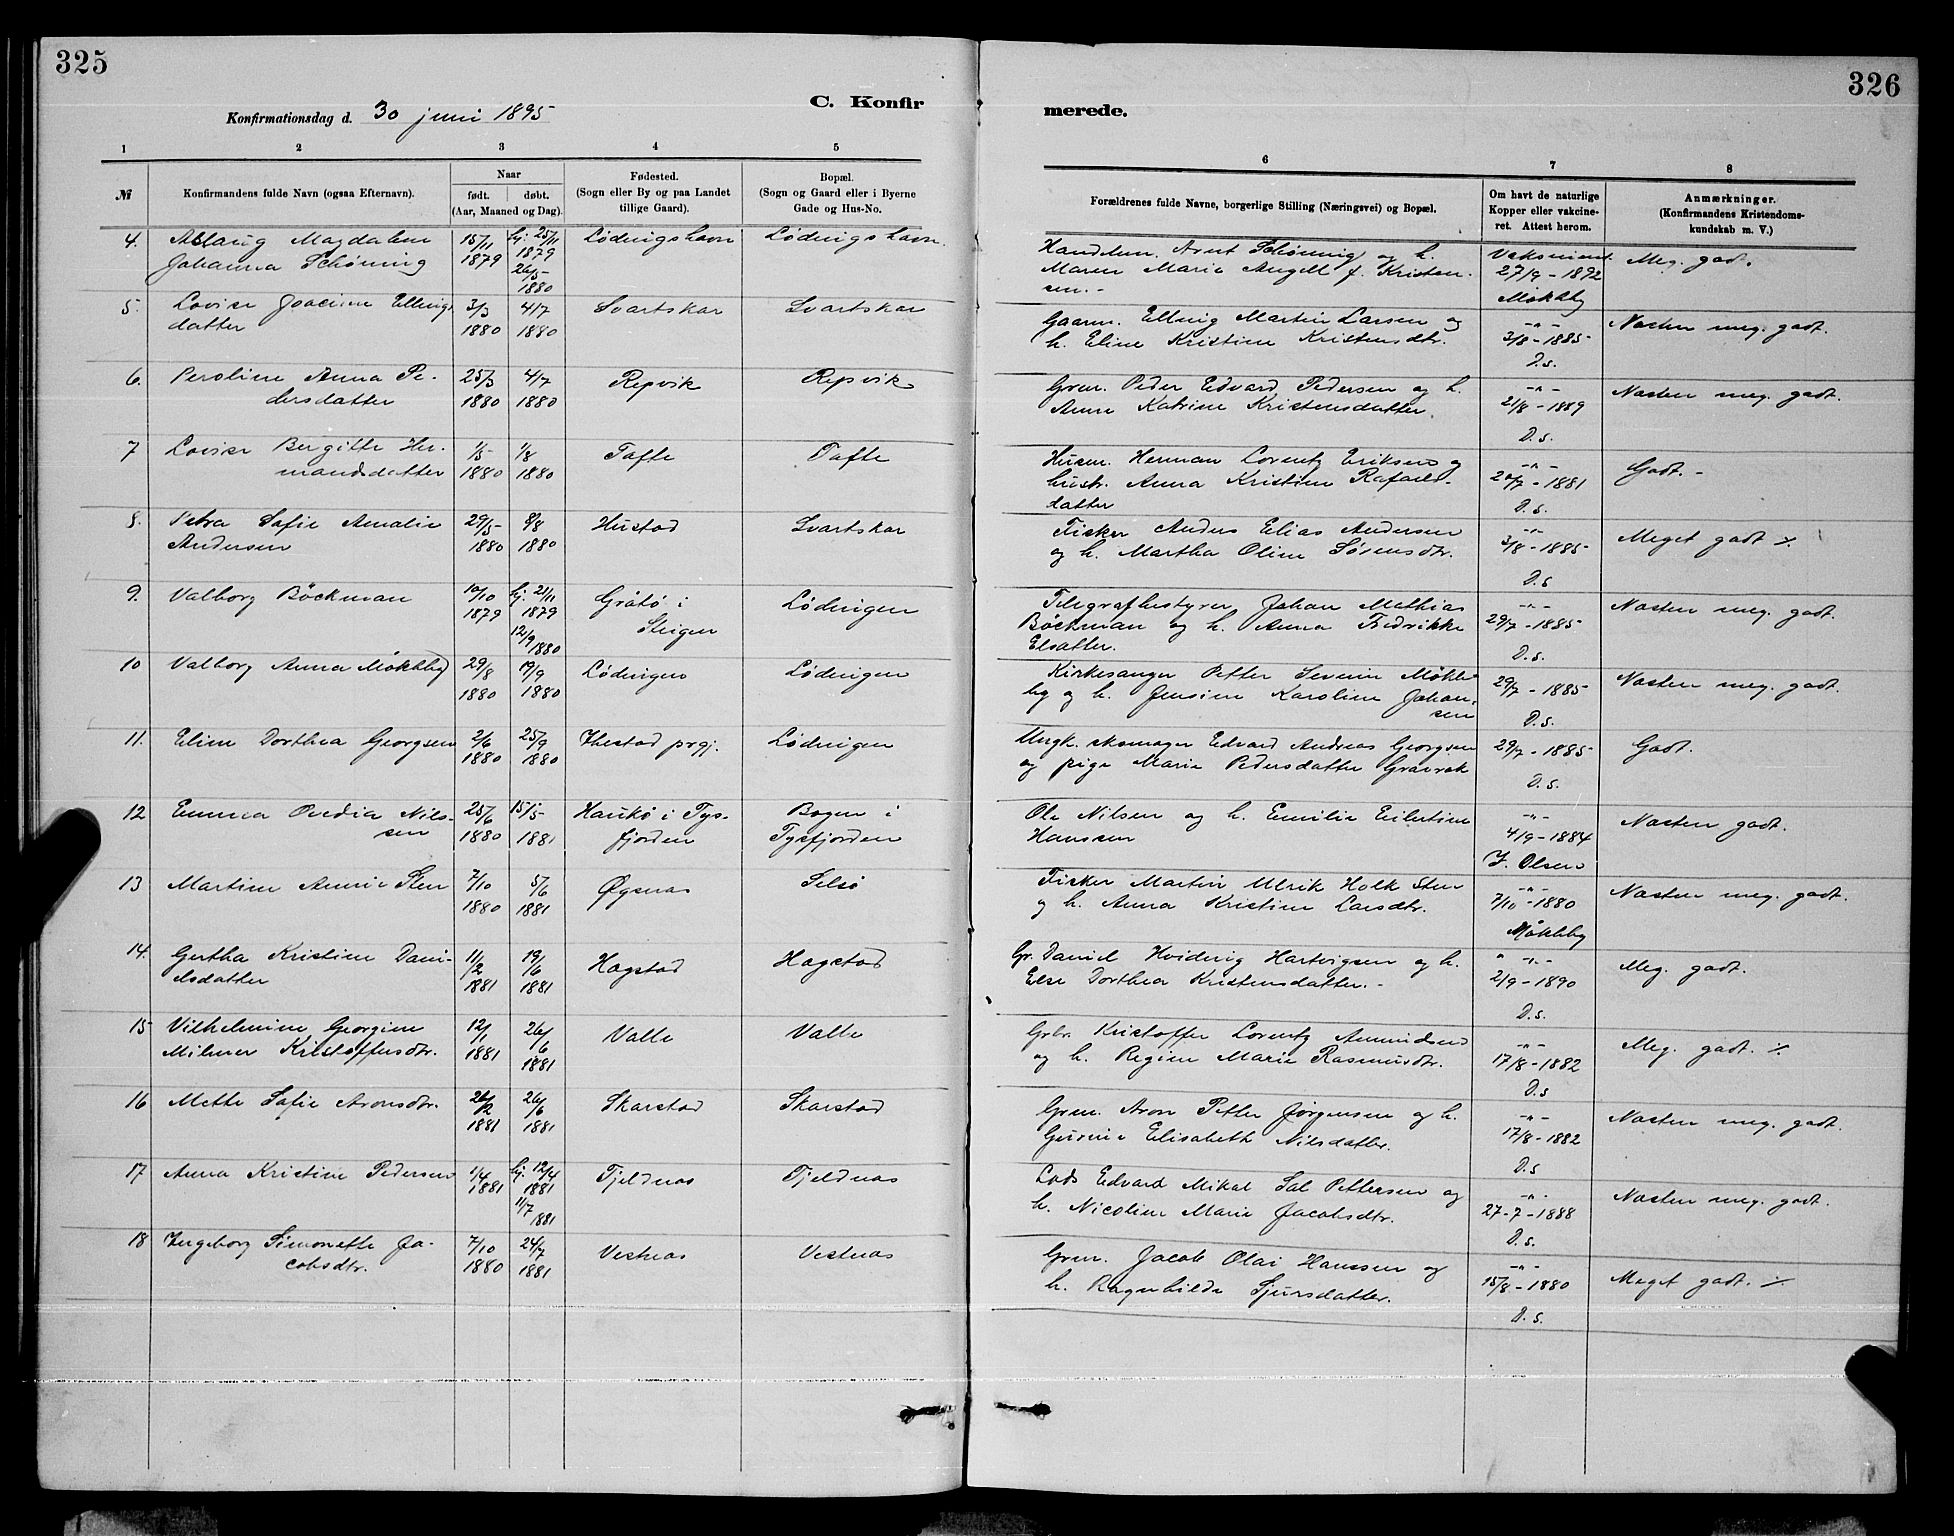 325
326
C. Konfir
merede.
Konfirmationsdag d. 30 juni 1895
1
2
3
4
5
6
7
8
№
Konfirmandens fulde Navn (ogsaa Efternavn).
Naar
født. døbt.
(Aar, Maaned og Dag).
Fødested.
(Sogn eller By og paa Landet
tillige Gaard).
Bopæl.
(Sogn og Gaard eller i Byerne
Gade og Hus-No.
Forældrenes fulde Navne, borgerlige Stilling (Næringsvei) og Bopæl.
Om havt de naturlige
Kopper eller vakcine-
ret. Attest herom.
Anmærkninger.
(Konfirmandens Kristendoms-
kundskab m. V.)
4. Aslaug Magdalene
Johanna Schöning
15/11
1879
hj. 25/11
1879
26/5-
1880
Lødingshavn
Lødingshavn.
Handelsm. Arnt Schöning og h.
Maren Marie Angell f. Kristen-
sen.-
Vaksineret
27/9-1892
Møkleby
Meg. godt.
5. Lovise Joacime Ellings
datter
3/3
1880
4/7
1880
Svartskar
Svartskar
Gaarm. Elling Martin Larsen og
h. Eline Kristine Kristensdtr.
-"-
3/8-1885-
D.s.
Næsten meg. godt.
6. Peroline Anna Pe-
dersdatter
25/3
1880
4/7
1880
Repvik
Repvik
Grm. Peder Edvard Pedersen og h.
Anne Katrine Kristensdatter.
-"-
21/8-1889
D.s.
Næsten meg. godt.
7 Lovise Bergitte Her-
mandsdatter
1/5-
1880
1/8
1880
Tofte
Tofte
Husm. Herman Lorentz Eriksen og
hustr. Anna Kristine Rafaels-
datter
-"-
20/7-1881
D.s.
Godt.-
8. Petra Sofie Amalie
Andersen
29/5-
1880
8/8
1880
Hustad
Svartskar
Fisker Anders Elias Andersen
og h. Martha Oline Sörensdtr.
-"-
3/8-1885-
D.s
Meget godt ./.
9. Valborg Böckman
10/10
1879
hj. 21/11
1879
12/9 1880
Gråtø i
Steigen
Lødingen
Telegrafbestyrer Johan Mathias
Böckman og h. Anna Fredrikke
-"-
29/7-1885-
D.s.
Næsten meg. godt.
10 Valborg Anna Møkleby
29/8
1880
19/9
1880
Lødingen
Lødingen
Kirkesanger Petter Severin Møkle-
by og h. Jensine Karoline Johan-
sen
29/7-1885-
D.s.
Næsten meg. godt.
11. Eline Dorthea Georgsen
2/6
1880
25/9
1880
Ibestad prgj.
Lødingen
Ungk. skomager Edvard Andreas Georgsen
og pige Marie Pedersdatter
29/7-1885-
D.s.
Godt.
12 Emma Ovedia Nils-
sen
25/6
1880
15/5-
1881
Haukø i Tys-
fjorden
Bogen i
Tysfjorden
Ole Nilsen og h. Emilie Eilertine
Hanssen
-"-
4/9-1884
J. Olsen
Næsten godt.
13 Martine Annie Sten
7/10
1880
5/6
1881
Øgsnæs
Selsö
Fisker Martin Ulrik Holk Sten
og h. Anna Kristine Larsdtr.
-"-
7/10-1880
Møkleby
Næsten meg. godt.
14. Gertha Kristine Dani-
elsdatter
11/2
1881
19/6
1881
Hogstad
Hogstad
Gr. Daniel Hviding Hartvigsen og h.
Else Dorthea Kristensdatter.-
" -"-
2/9-1890
D.s.
Meg. godt.
15 Vilhelmine Georgine
Milmer Kristoffersdtr.
12/1
1881
26/6
1881
Valle
Valle
Grbr. Kristoffer Lorentz Amundsen
og h. Regine Marie Rasmusdtr.
-"-
17/8-1882
D.s
Meg. godt. ./.
16 Mette Sofie Aronsdtr.
26/2
1881
26/6
1881
Skarstad
Skarstad
Grm. Aron Petter Jörgensen og h.
Gurine Elisabeth Nilsdatter.
-"-
17/8-1882
D.s
Næsten meg. godt.
17 Anna Kristine Pedersen
1/4
1881
hj. 12/4
1881
11/7 1881
Tjeldnæs
Tjeldnæs
Lods Edvard Mikal Sal Pettersen og
h. Nicoline Marie Jacobsdtr.
-"-
27-7-1888
D.s.
Næsten meg. godt.
18 Ingeborg Simonette Ja-
cobsdtr.
7/10
1880
24/7
1881
Vestnæs
Vestnæs
Grm. Jacob Olai Hanssen og
h. Ragnhilde Sjursdatter.
-"-
15/8-1880
D.s.
Meget godt. ./.